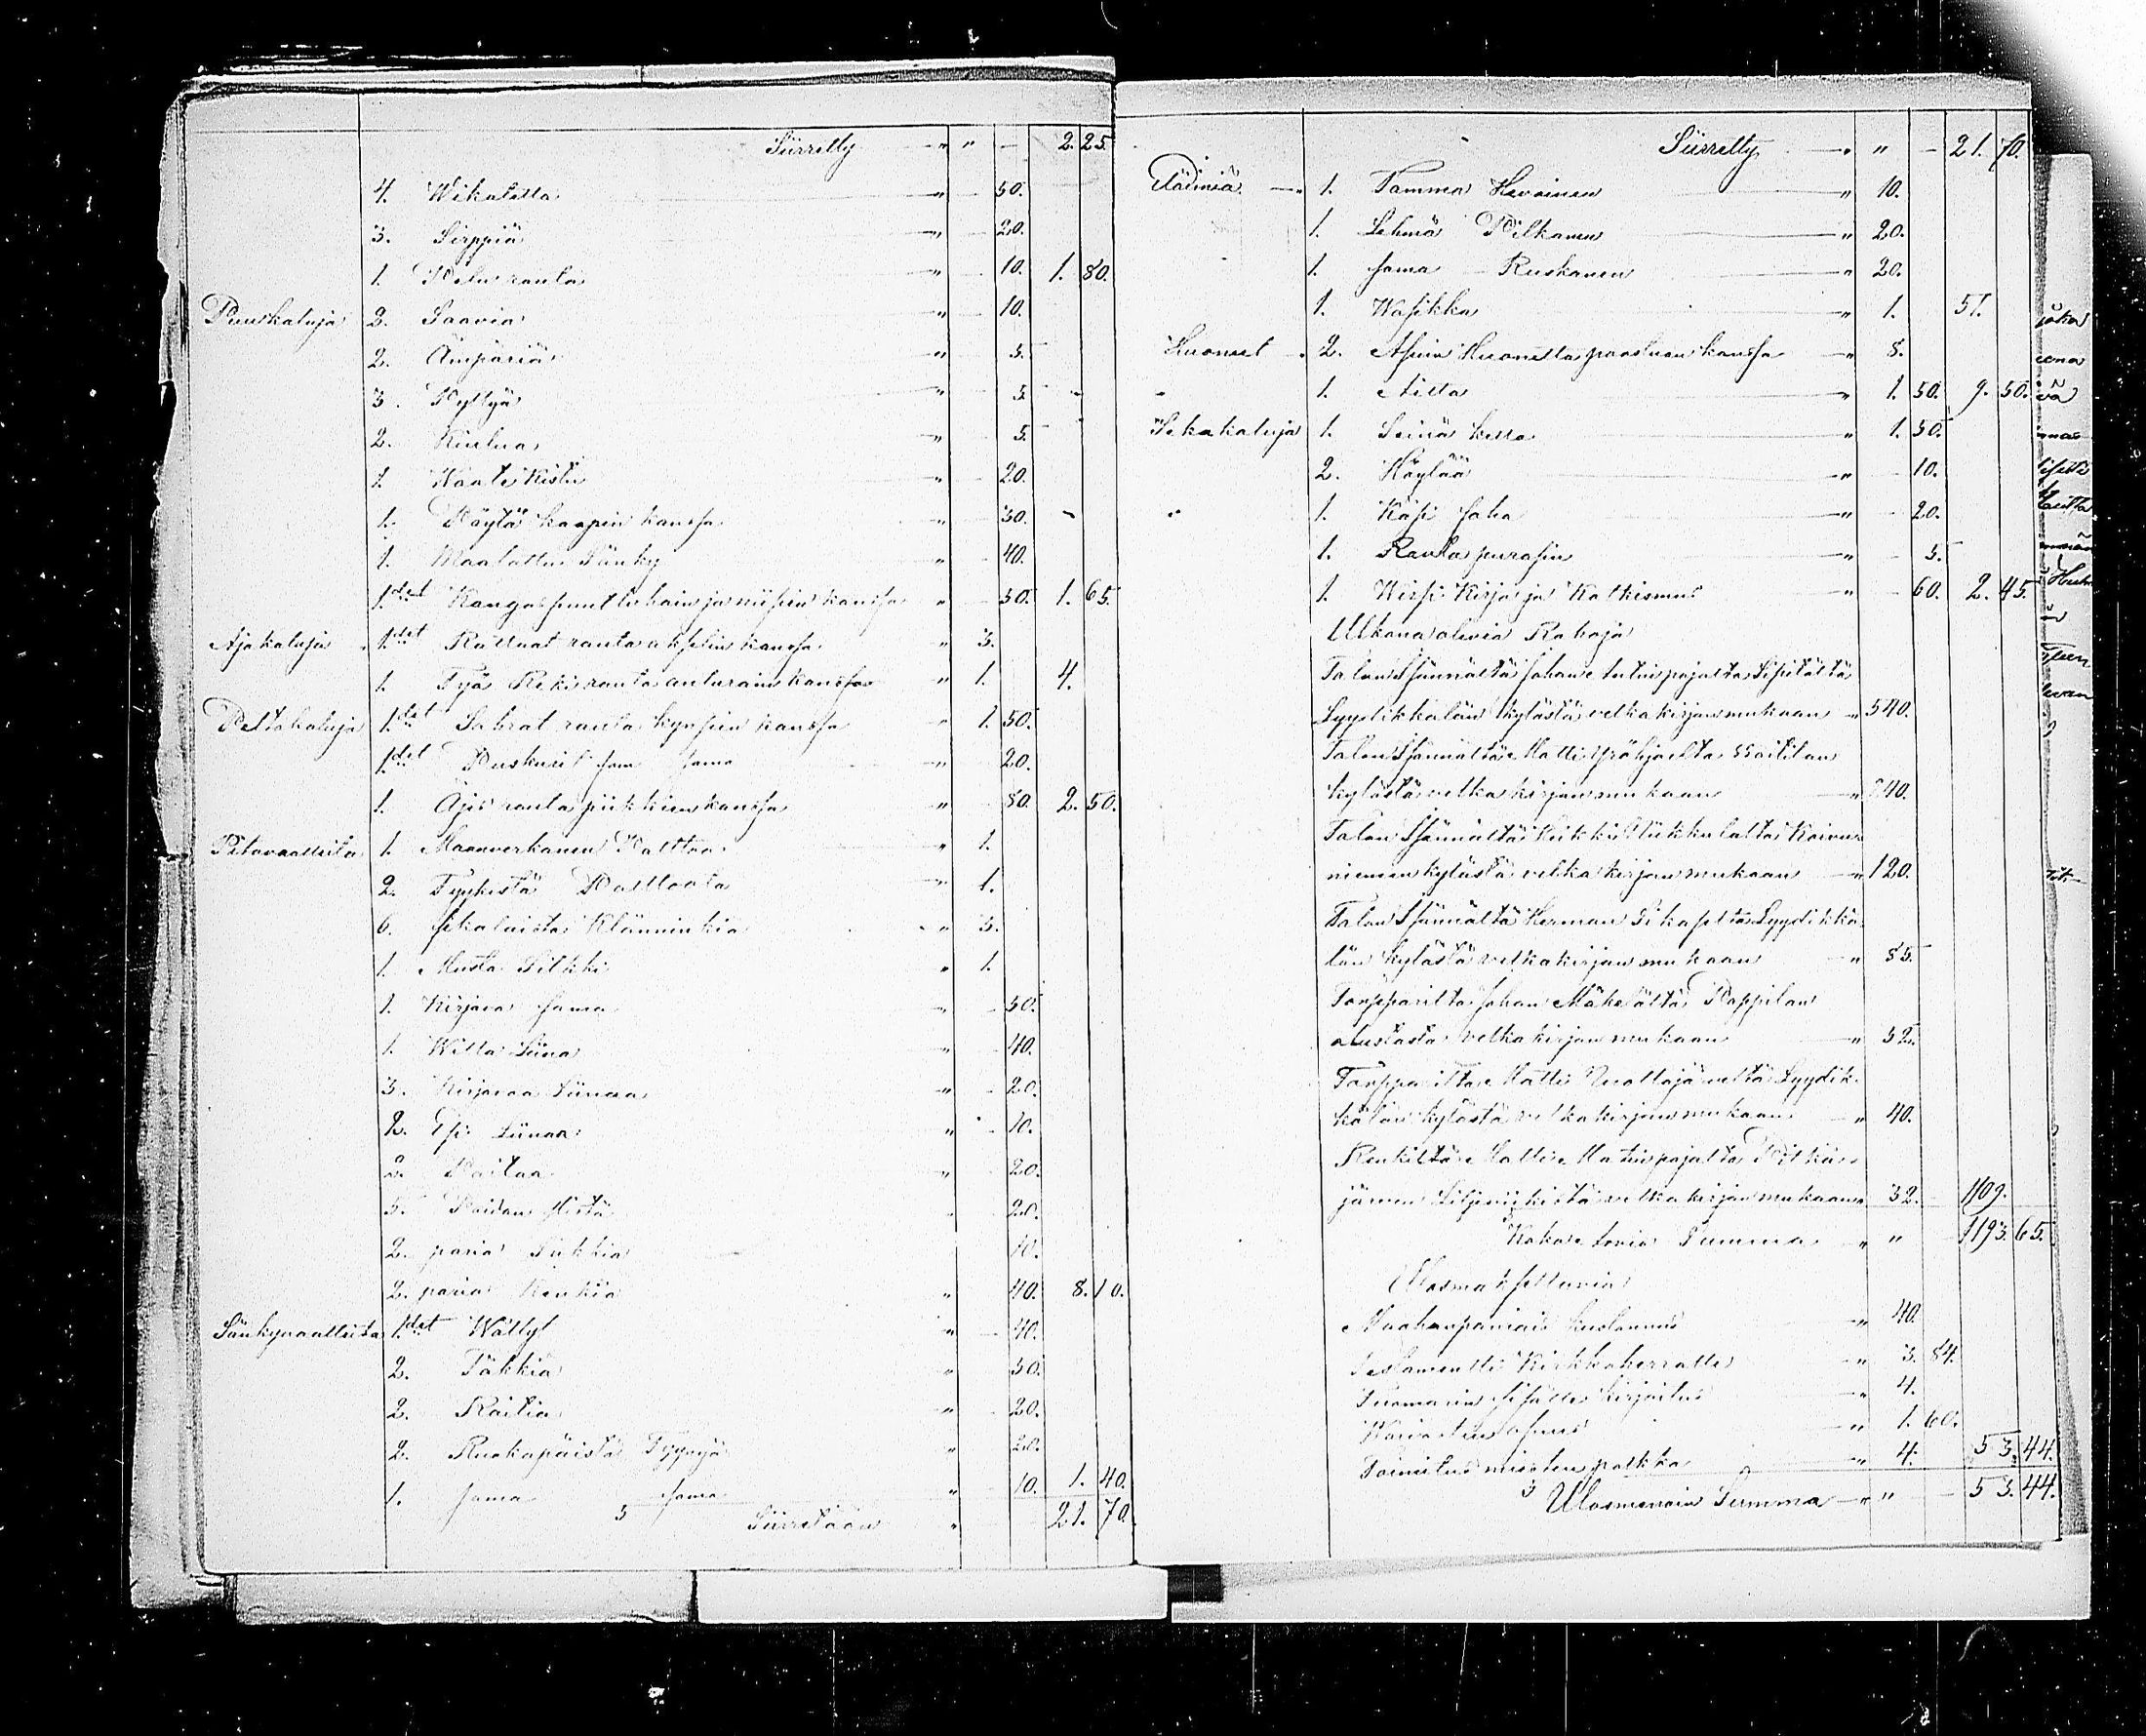 Siirretty " " - 2. 25.
4. Wikatetta " 50.
3. Sirppiä " 20.
1. Petu rauta " 10. 1. 80.
Puuskaluja 2. Saavia " 10.
2. Ämpäriä " 5.
3. Pyttyä " 5.
2. Kiulua " 5.
1. Waate Kistu " 20.
1. Pöytä kaapin kanssa " 30.
1. Maalattu Sänky " 40.
1.det Kangaspuut luhain ja niisien kanssa " 50. 1. 65.
Ajokaluja 1.det Rattaat rauta akselin kanssa " 3.
1. Työ Reki rauta anturain kanssa " 1. 4.
Peltokaluja 1.det Sahrat rauta kynsien kanssa " 1. 50.
1.det Puskurit sam sama " 20.
1. Äjes rauta piikkien kanssa " 80. 2. 50.
Pitovaatteita 1. Maanverkanen Palttoo " 1.
2. Tyykistä Palttoota " 1.
6. sekalaista Klänninkiä " 3.
1. Musta Silkki " 1.
1. Kirjava sama " 50.
1. Willa Liina " 40.
3. Kirjavaa Liinaa " 20.
2. Esi Liinaa " 10.
2. Paitaa " 20.
5. Paidan " 20.
2. paria Sukkia 10.
2. paria Kenkiä " 40. 8. 10.
Sänkyvaatteita 1.det Wällyt " 40.
2. Täkkiä " 30.
2. Raitia " 20.
2. Ruokapäistä Tyynyä " 20.
1. sama sama " 10. 1. 40.
Siirretään " 21. 70.
Siirretty " " - 21. 70.
Eläimiä 1. Tamma Hevoinen " 10.
1. Lehmä Pilkanen " 20.
1. sama Ruskanen " 20.
1. Wasikka " 1. 51.
Huoneet 2. Asuin Huonetta porstuan kanssa " 8.
" 1. Aitta " 1. 50. 9. 50.
Sekakaluja 1. Seinä kello " 1. 50.
2. Höylää " 10.
" 1. Käsi saha " 20.
1. Rauta purasin " 5.
1. Wirsi Kirja ja Katkismus " 60. 2. 45.
Ulkona olevia Rahoja
Talon Isännältä Johan Antinpajalta Sipilältä
Lyydikkälän kylästä velkakirjan mukaan " 540.
Talon Isännältä Matti Yrähjaelta
kylästä velka kirjan mukaan " 240.
Talon Isännältä Heikki Tiikkulalta Koivu-
niemen kylästä velka kirjan mukaan " 120.
Talon Isännältä Herman Sikaselta Lyydikkä-
län kylästä velkakirjan mukaan " 85.
Torpparilta Johan Mäkelältä Pappilan
alustasta velkakirjan mukaan " 52.
Torpparilta Matti Nuottajärveltä Lyydik-
kälän kylästä velkakirjan mukaan " 40.
Renkiltä Matti Matinpajalta Pitkä-
järven velka kirjan mukaan " 32. 1109.
Koko Summa " " 1193. 65.
Ulosmaksettavia
Maahanpaniais kustannus " 40.
Testamentti Kirkkoherralle " 3. 84.
Tuomarin sisälle kirjoitus " 4.
" 1. 60.
Toimitus miesten palkka " 4. 53. 44.
Ulosmenoin Summa " " 53. 44.